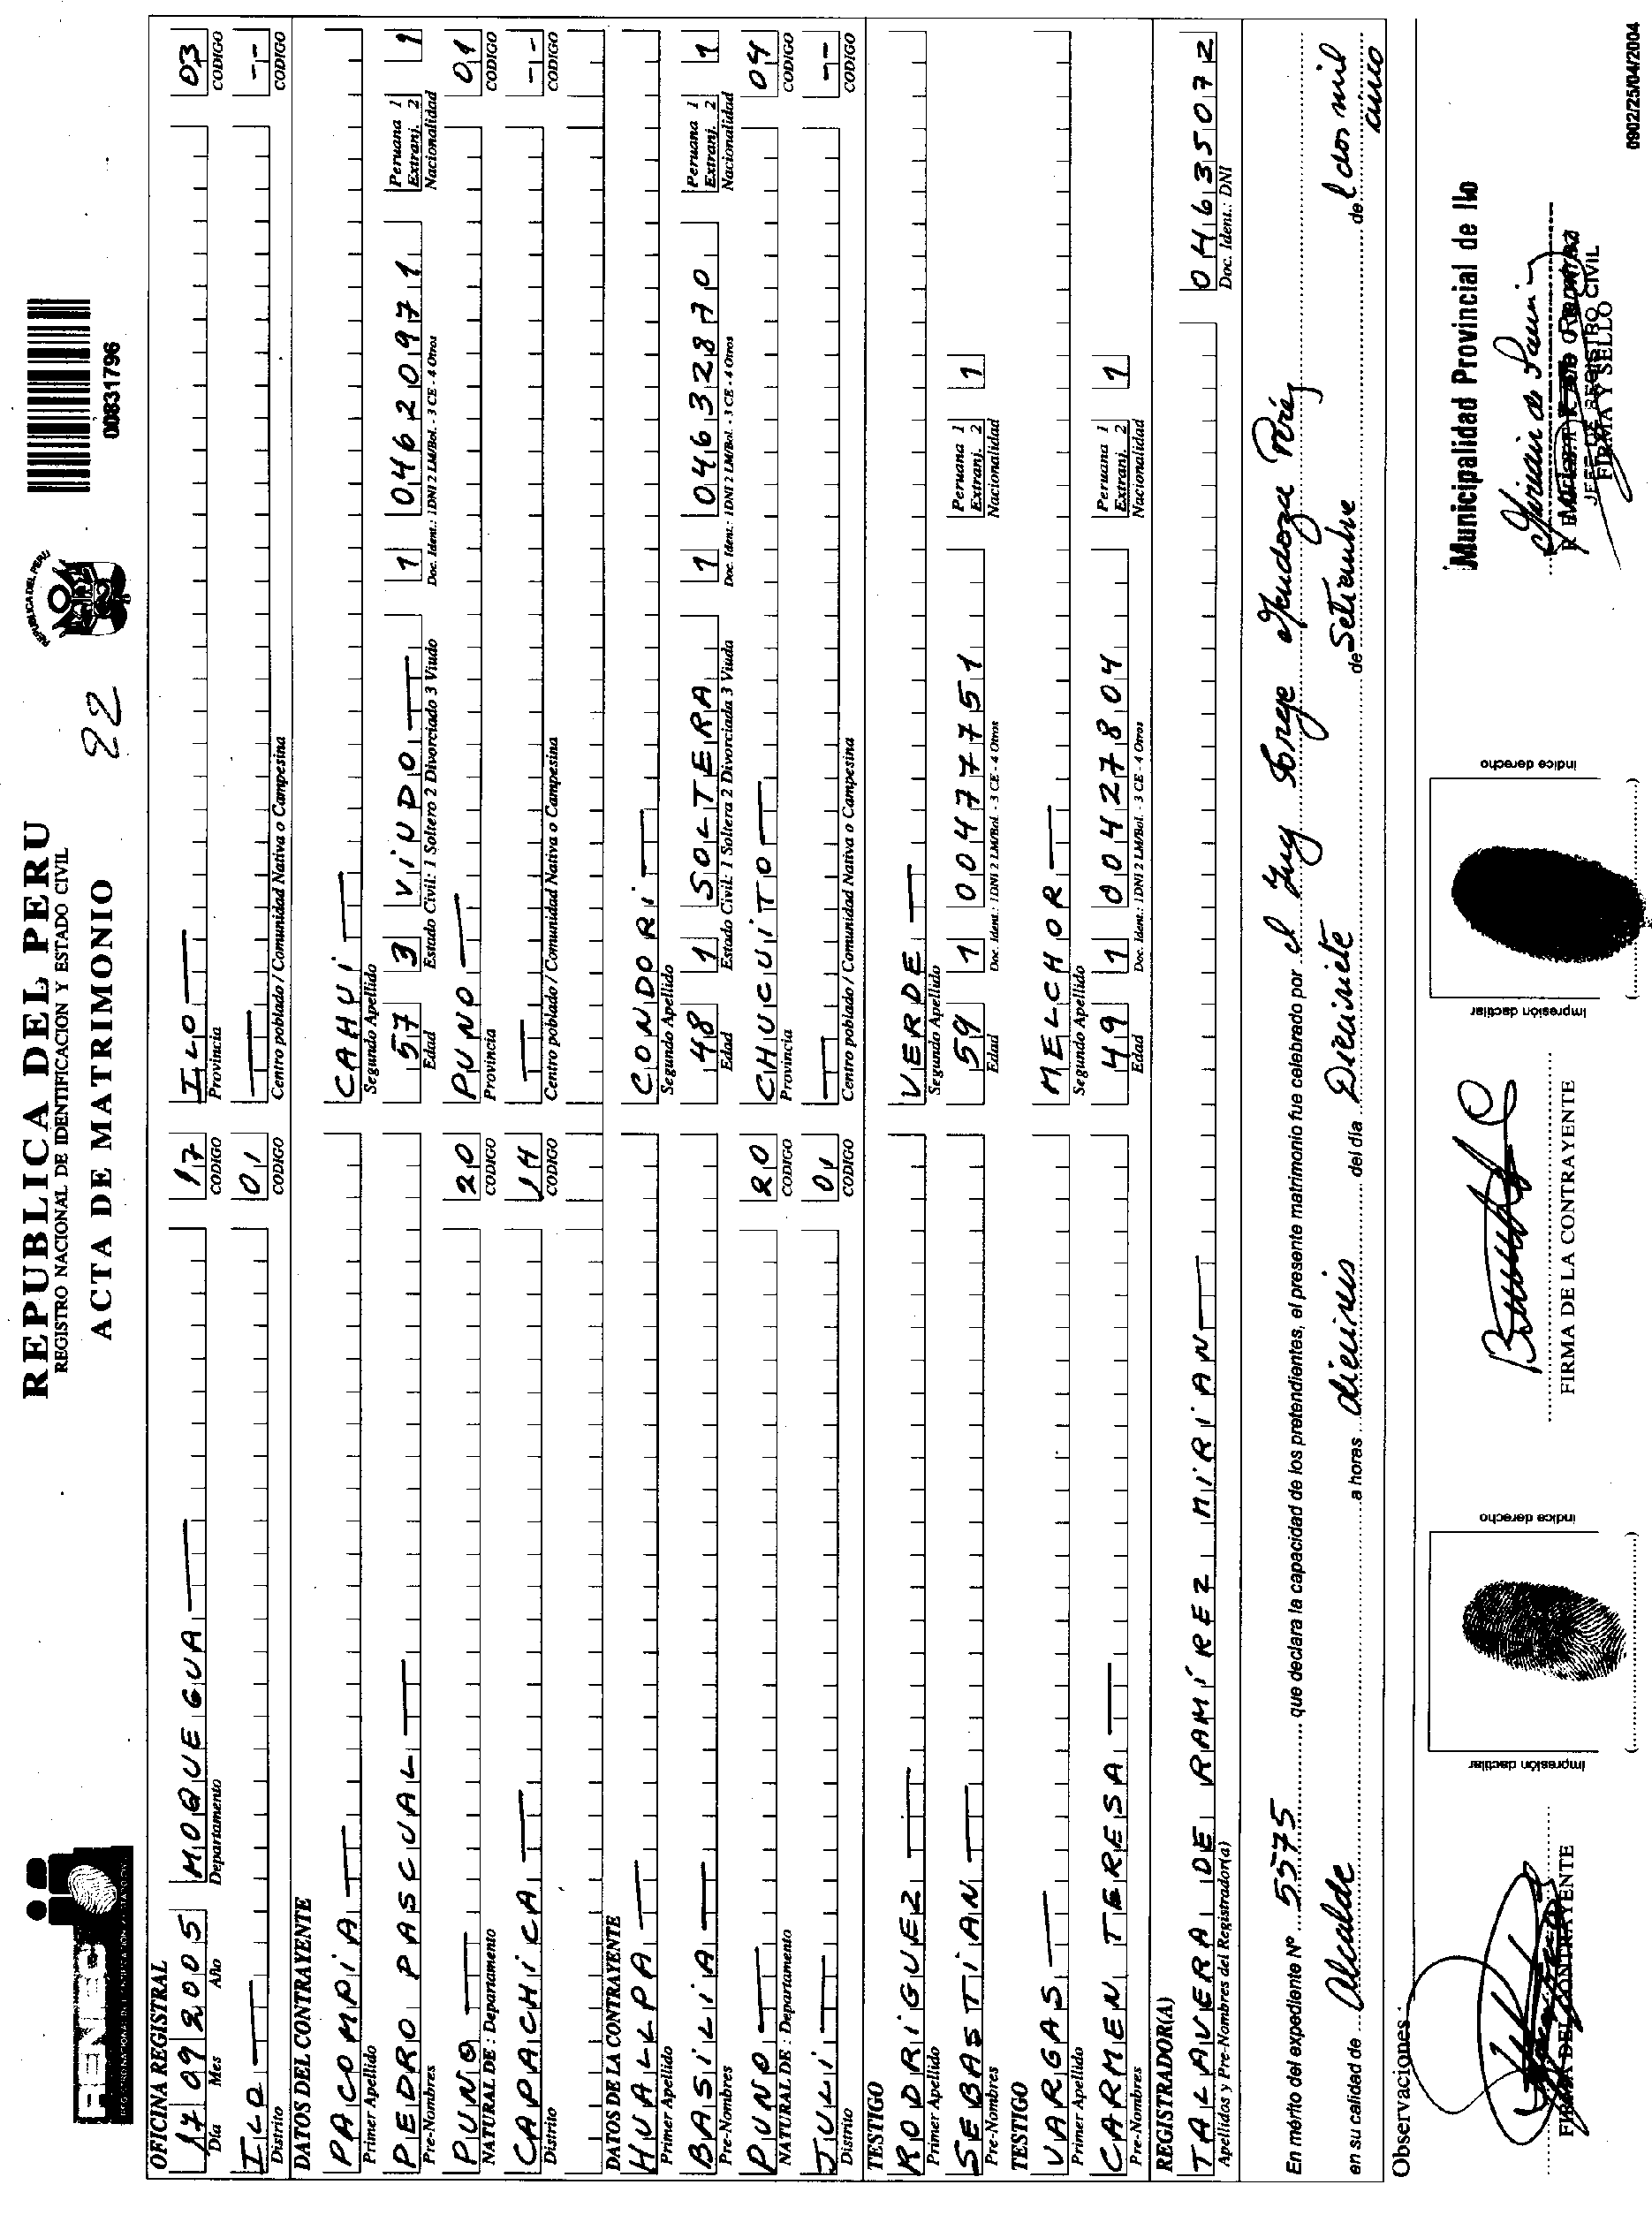 RENIEC
REGISTRO NACIONAL DE IDENTIFICACION Y ESTADO CIVIL
REPUBLICA DEL PERU
REGISTRO NACIONAL DE IDENTIFICACION Y ESTADO CIVIL
ACTA DE MATRIMONIO
22
REPUBLICA DEL PERU
00831796
OFICINA REGISTRAL
17 09 2005 MOQUEGUA 17 ILO 03
Día Mes Año Departamento CODIGO Provincia CODIGO
ILO 01 --
Distrito CODIGO Centro poblado / Comunidad Nativa o Campesina CODIGO
DATOS DEL CONTRAYENTE
PACOMPIA CAHUI
Primer Apellido Segundo Apellido
PEDRO PASCUAL 57 3 VIUDO 1 04620971 Peruana 1 Extranj. 2 1
Pre-Nombres Edad Estado Civil: 1 Soltero 2 Divorciado 3 Viudo Doc. Ident.: 1DNI 2 LM/Bol. - 3 CE - 4 Otros Nacionalidad
PUNO 20 PUNO 01
NATURAL DE : Departamento CODIGO Provincia CODIGO
CAPACHICA 14 --
Distrito CODIGO Centro poblado / Comunidad Nativa o Campesina CODIGO
DATOS DE LA CONTRAYENTE
HUALLPA CONDORI
Primer Apellido Segundo Apellido
BASILIA 48 1 SOLTERA 1 04632870 Peruana 1 Extranj. 2 1
Pre-Nombres Edad Estado Civil: 1 Soltera 2 Divorciada 3 Viuda Doc. Ident.: 1DNI 2 LM/Bol. - 3 CE - 4 Otros Nacionalidad
PUNO 20 CHUCUITO 04
NATURAL DE : Departamento CODIGO Provincia CODIGO
JULI 01 --
Distrito CODIGO Centro poblado / Comunidad Nativa o Campesina CODIGO
TESTIGO
RODRIGUEZ VERDE
Primer Apellido Segundo Apellido
SEBASTIAN 59 1 00477751 Peruana 1 Extranj. 2 1
Pre-Nombres Edad Doc. Ident.: 1DNI 2 LM/Bol. - 3 CE - 4 Otros Nacionalidad
TESTIGO
VARGAS MELCHOR
Primer Apellido Segundo Apellido
CARMEN TERESA 49 1 00427804 Peruana 1 Extranj. 2 1
Pre-Nombres Edad Doc. Ident.: 1DNI 2 LM/Bol. - 3 CE - 4 Otros Nacionalidad
REGISTRADOR(A)
TALAVERA DE RAMÍREZ MIRIAN 04635072
Apellidos y Pre-Nombres del Registrador(a) Doc. Ident.: DNI
En mérito del expediente Nº 5575 que declara la capacidad de los pretendientes, el presente matrimonio fue celebrado por el Ing Jorge Mendoza Peréz
en su calidad de Alcalde a horas dieciseis del día Diecisiete de Setiembre de l dos mil
cinco
Observaciones:
Municipalidad Provincial de Ilo
Impresión dactilar índice derecho
Impresión dactilar índice derecho
JEFE DE REGISTRO CIVIL
FIRMA DEL CONTRAYENTE
FIRMA DE LA CONTRAYENTE
FIRMA Y SELLO
0902/25/04/2004